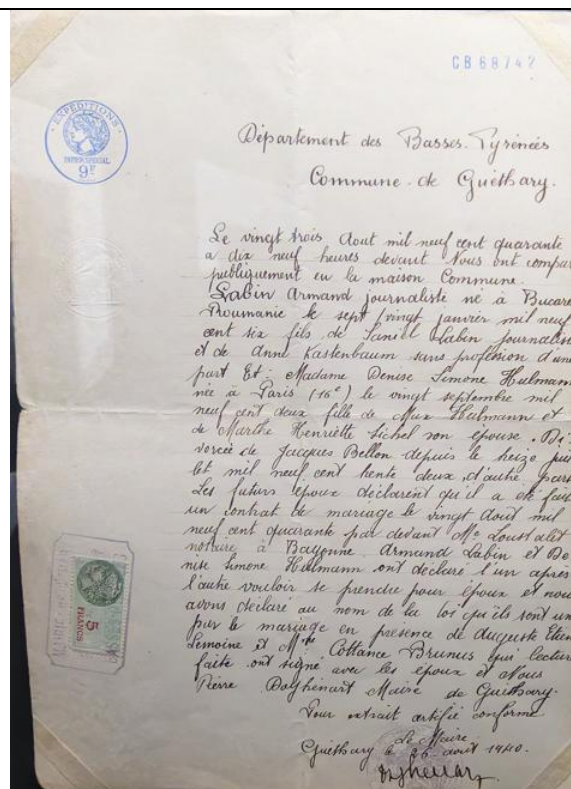 CB 68742
EXPÉDITIONS
PAPIER SPÉCIAL
9F
Département des Basses-Pyrénées
Commune de Guéthary.
Le vingt trois Aout mil neuf cent quarante
a dix neuf heures devant Nous ont compar
publiquement en la maison Commune.
Labin Armand journaliste né à Bucare
Roumanie le sept vingt janvier mil neuf
cent six fils de Daniel Labin journaliste
et de Anna Kastenbaum sans profession d'une
part Et: Madame Denise Simone Hulmann
née à Paris (16e) le vingt septembre mil
neuf cent deux fille de Max Hulmann et
de Marthe Henriette Sichel son épouse. Di
vorcée de Jacques Bellon depuis le seize juil
let mil neuf cent trente deux, d'autre part
Les futurs époux déclarent qu'il a été fait
un contrat de mariage le vingt Aout mil
neuf cent quarante par devant Me Loustalet
notaire à Bayonne. Armand Labin et De
nise Simone Hulmann ont déclaré l'un après
l'autre vouloir se prendre pour époux et nous
avons déclaré au nom de la loi qu'ils sont un
par le mariage en présence de Auguste Etien
Lemoine et Cottance Brunus qui lecture
faite ont signé avec les époux et Nous
Pierre Maire de Guéthary.
Pour extrait certifié conforme
Le Maire
Guéthary le 26 août 1940.
5
FRANCS